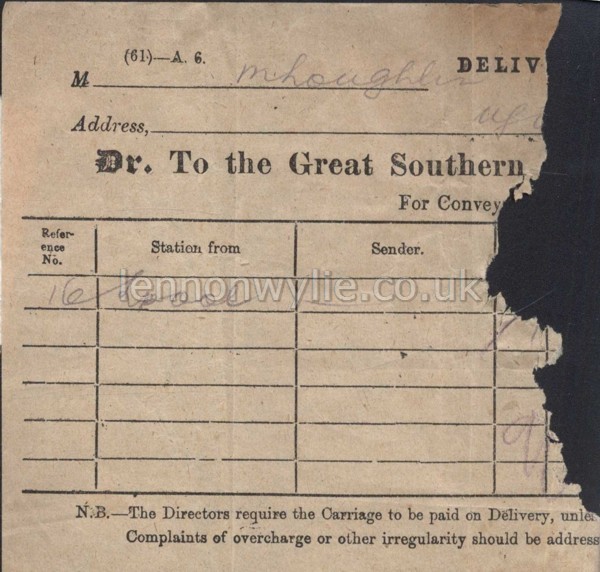 (61)—A. 6.
DELIV
M McLoughlin
Address,
Dr. To the Great Southern
For Convey
Refer-
ence
No.
Station from
Sender.
lennonwylie.co.uk
16 L'pool
N.B.—The Directors require the Carriage to be paid on Delivery, unle
Complaints of overcharge or other irregularity should be address